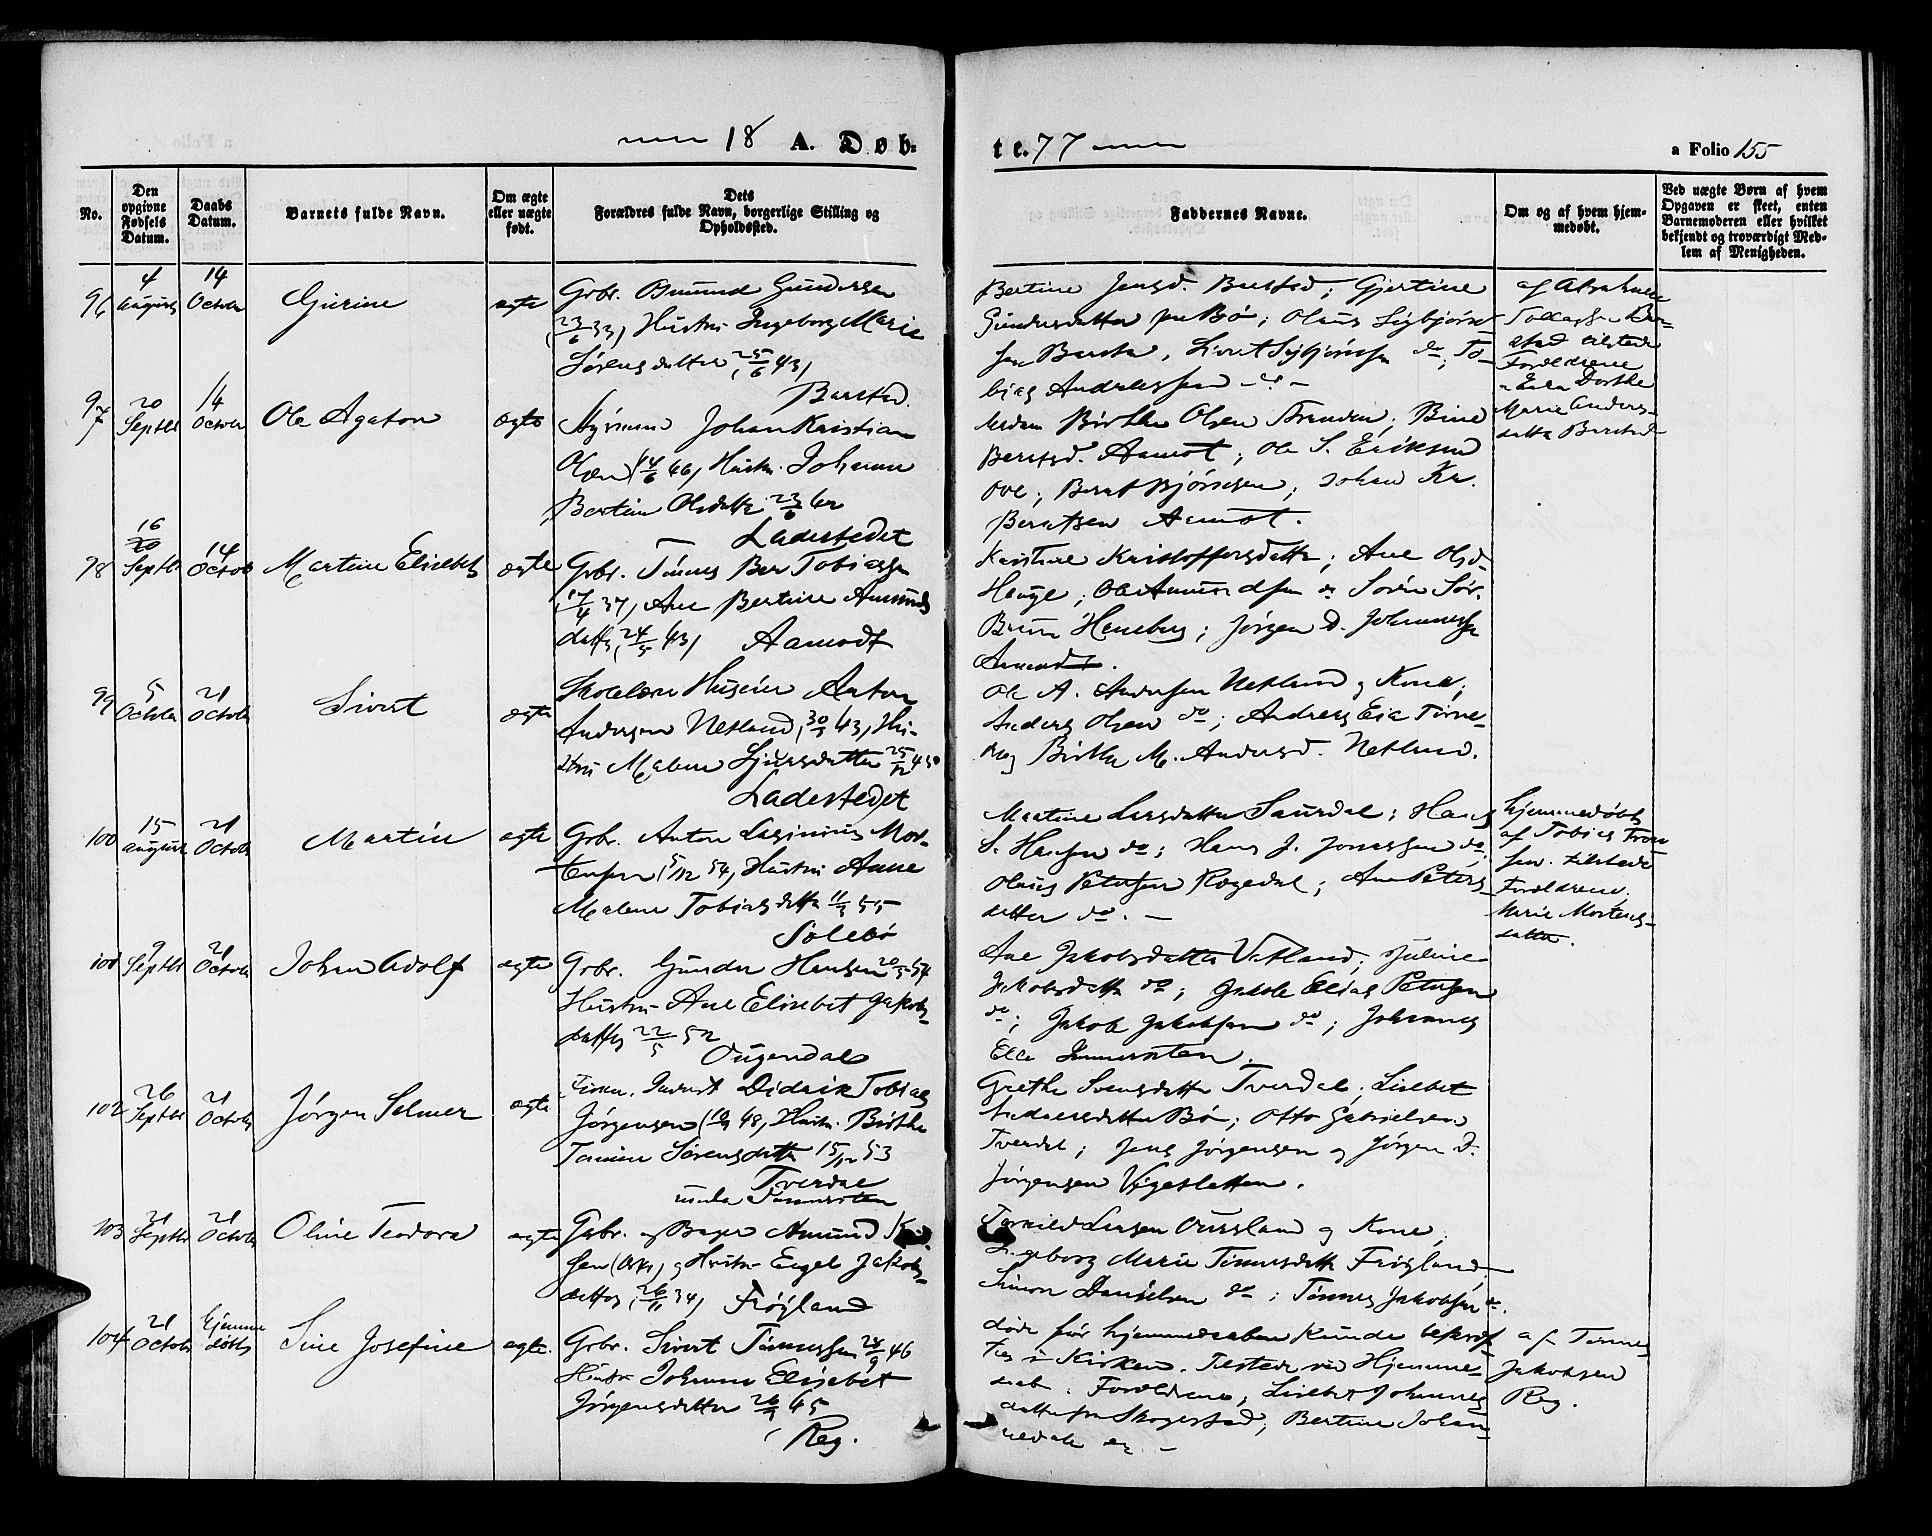 18 A. Døb-
te. 77
a Folio 155
No.
Den opgivne Fødsels Datum.
Daabs Datum.
Barnets fulde Navn.
Om ægte eller uægte født.
Dets Forældres fulde Navn, borgerlige Stilling og Opholdssted.
Faddernes Navne.
Om og af hvem hjem-
medøbt.
Ved uægte Børn af hvem
Opgaven er skeet, enten
Barnemoderen eller hvilket
bekjendt og troværdigt Med-
lem af Menigheden.
96
4 August
14 Octobr
Gurine
ægte
Grbr. Gundersen
(23/6 33) Hustru Ingeborg Marie
Sørensdatter (25/6 43)
Barstad.
Bertine Jensd. Barstad; Gjertine
Gundersdatter Bø; Olaus Sigbjørn-
sen Barstad, Sigbjørnsen do; To-
bias Andreassen do
af Abraham
stad tilstede
Forældrene
Dorthe
Marie Anders-
datter Barstad
97
20 Septbr
14 Octobr
Ole Agaton
ægte
Styrmand Johan Kristian
Olsen (14/6 46) Hustru Johanne
Bertine Olsdatter 23/6 42
Ladestedet
Birthe Olsen Stranden; Bine
Berntsd. Aamot; Ole S. Eriksen
Bernt Bjørnsen; Johan Kr.
Berntsen Aamot.
98
16 Septbr
14 Octob
Martine Elisebet
ægte
Grbr. Tønnes Ber Tobiassen
(17/4 37) Ane Bertine Amunds
datter (24/5 43) Aamodt
Kristine Kristoffersdatter; Ane Olsd
Hauge; Ole Amundsen do Søren Sør.
Haneberg; Jørgen D. Johannessen
Aamodt.
99
5 October
21 Octob
Sivert
ægte
Skolelærer Huseier Anton
Andersen Netland (30/5 43) Hu-
stru Malene Sjursdatter 25/12 45
Ladestedet
Ole A. Andersen Netland og Kone;
Anders Olsen do; Andreas Eia
Birthe M. Andersd. Netland.
100
15 August
21 Octob
Martin
ægte
Grbr. Anton Mor-
tensen (5/12 54) Hustru Anne
Malene Tobiasdatter 11/3 55
Solebø
Martine Larsdatter Saurdal; Hans
S. Hansen do; Hans J. Jonassen do;
Olaus Petersen Rægedal; Ane Peters-
datter do. –
hjemmedøbt
af Tobias
sen. tilstede
Forældrene.
Marie Mortens-
datter.
101
9 Septbr
21 Octob
Johan Adolf
ægte
Grbr. Gunder Hansen 20/3 54
Hustru Ane Elisebet Jakobs-
datter 22/5 52
Ougendal
Ane Jakobsdatter Vatland; Juline
Jakobsdatter do; Jakob Elias Petersen
do; Jakob Jakobsen do; Johannes
102
26 Septbr
21 Octob
Jørgen Selmer
ægte
Didrik Tobias
Jørgensen (10/9 48) Hustru Birthe
Tomine Sørensdatter 15/12 53
Tverdal
Grethe Svensdatter Tverdal; Lisebet
Andreasdatter Bø; Otto Gabrielsen
Tverdal; Jens Jørgensen og Jørgen D.
Jørgensen Vigesletten.
103
21 Septbr
21 Octob
Oline Teodora
ægte
Grbr. og Bager Amund
sen og Hustru Engel Jakobs-
datter (26/11 34) Frøyland
Larsen Ousland og Kone;
Ingeborg Marie Tønnesdatter Frøyland;
Simon Danielsen do; Tønnes Jakobsen do.
104
21 Octob
hjemme
døbt
Sine Josefine
ægte.
Grbr. Sivert Tønnessen 24/9 46
Hustru Johanne Elisebet
Jørgensdatter 26/3 45
Reg.
døde før hjemmedaaben kunde bekræf-
tes i Kirken. Tilstede ved Hjemme-
daab. Forældrene; Lisebet Johannes
datter fra Skogestad; Bertine Johan-
af Tønnes
Jakobsen
Reg.